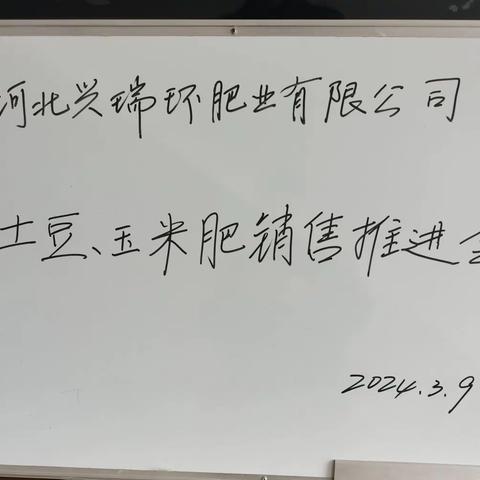 河北兴瑞环肥业有限公司
土豆、玉米肥销售推进会
2024.3.9